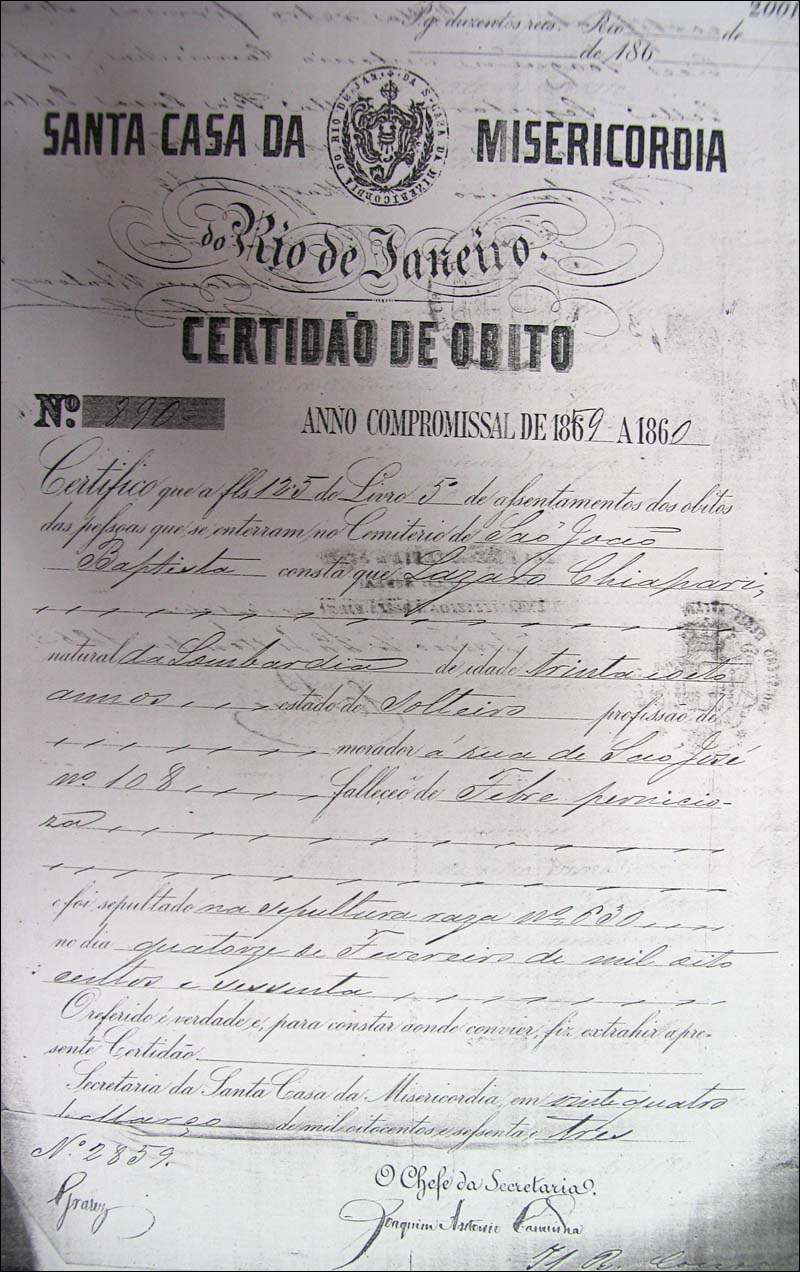 2001
Pg. duzentos reis. Rio de
de 186
SANTA CASA DA MISERICORDIA
do Rio de Janeiro.
CERTIDÃO DE OBITO
Nº. 890 ANNO COMPROMISSAL DE 1859 A 1860
Certifico que a fls 125 do Livro 5º de assentamentos dos obitos
das pessoas que se enterram no Cemiterio de São João
Baptista consta que Lazaro Chiapari,
natural da Lombardia de idade trinta e oito
annos estado de Solteiro profissão de
morador á rua de São José
nº 108 falleceo de Febre pernicio-
za
e foi sepultado na sepultura raza nº 630
no dia quatorze de Fevereiro de mil oito
centos e sessenta
O referido é verdade e, para constar aonde convier, fiz extrahir a pre-
sente Certidão
Secretaria da Santa Casa da Misericordia, em vinte quatro
de Março de mil oitocentos e sessenta e tres
Nº 2859.
O Chefe da Secretaria.
Joaquim Antonio